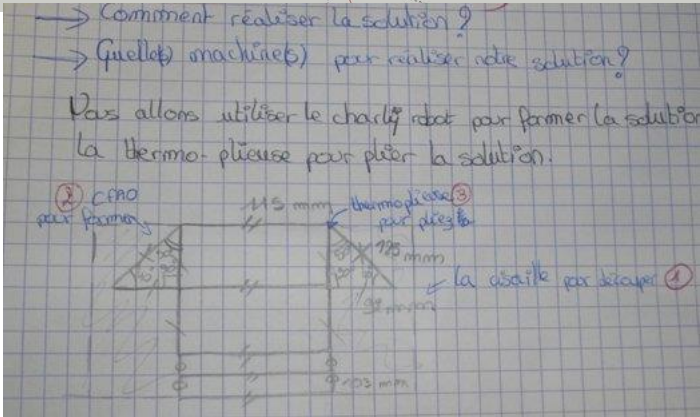 → Comment réaliser la solution ?
→ Quelle(s) machine(s) pour réaliser notre solution ?
Nous allons utiliser le charly robot pour former la solution
la thermo-plieuse pour plier la solution.
② CFAO
pour former
115 mm
thermoplieuse ③
pour plier la
125 mm
la cisaille pour découper ①
92 mm
103 mm